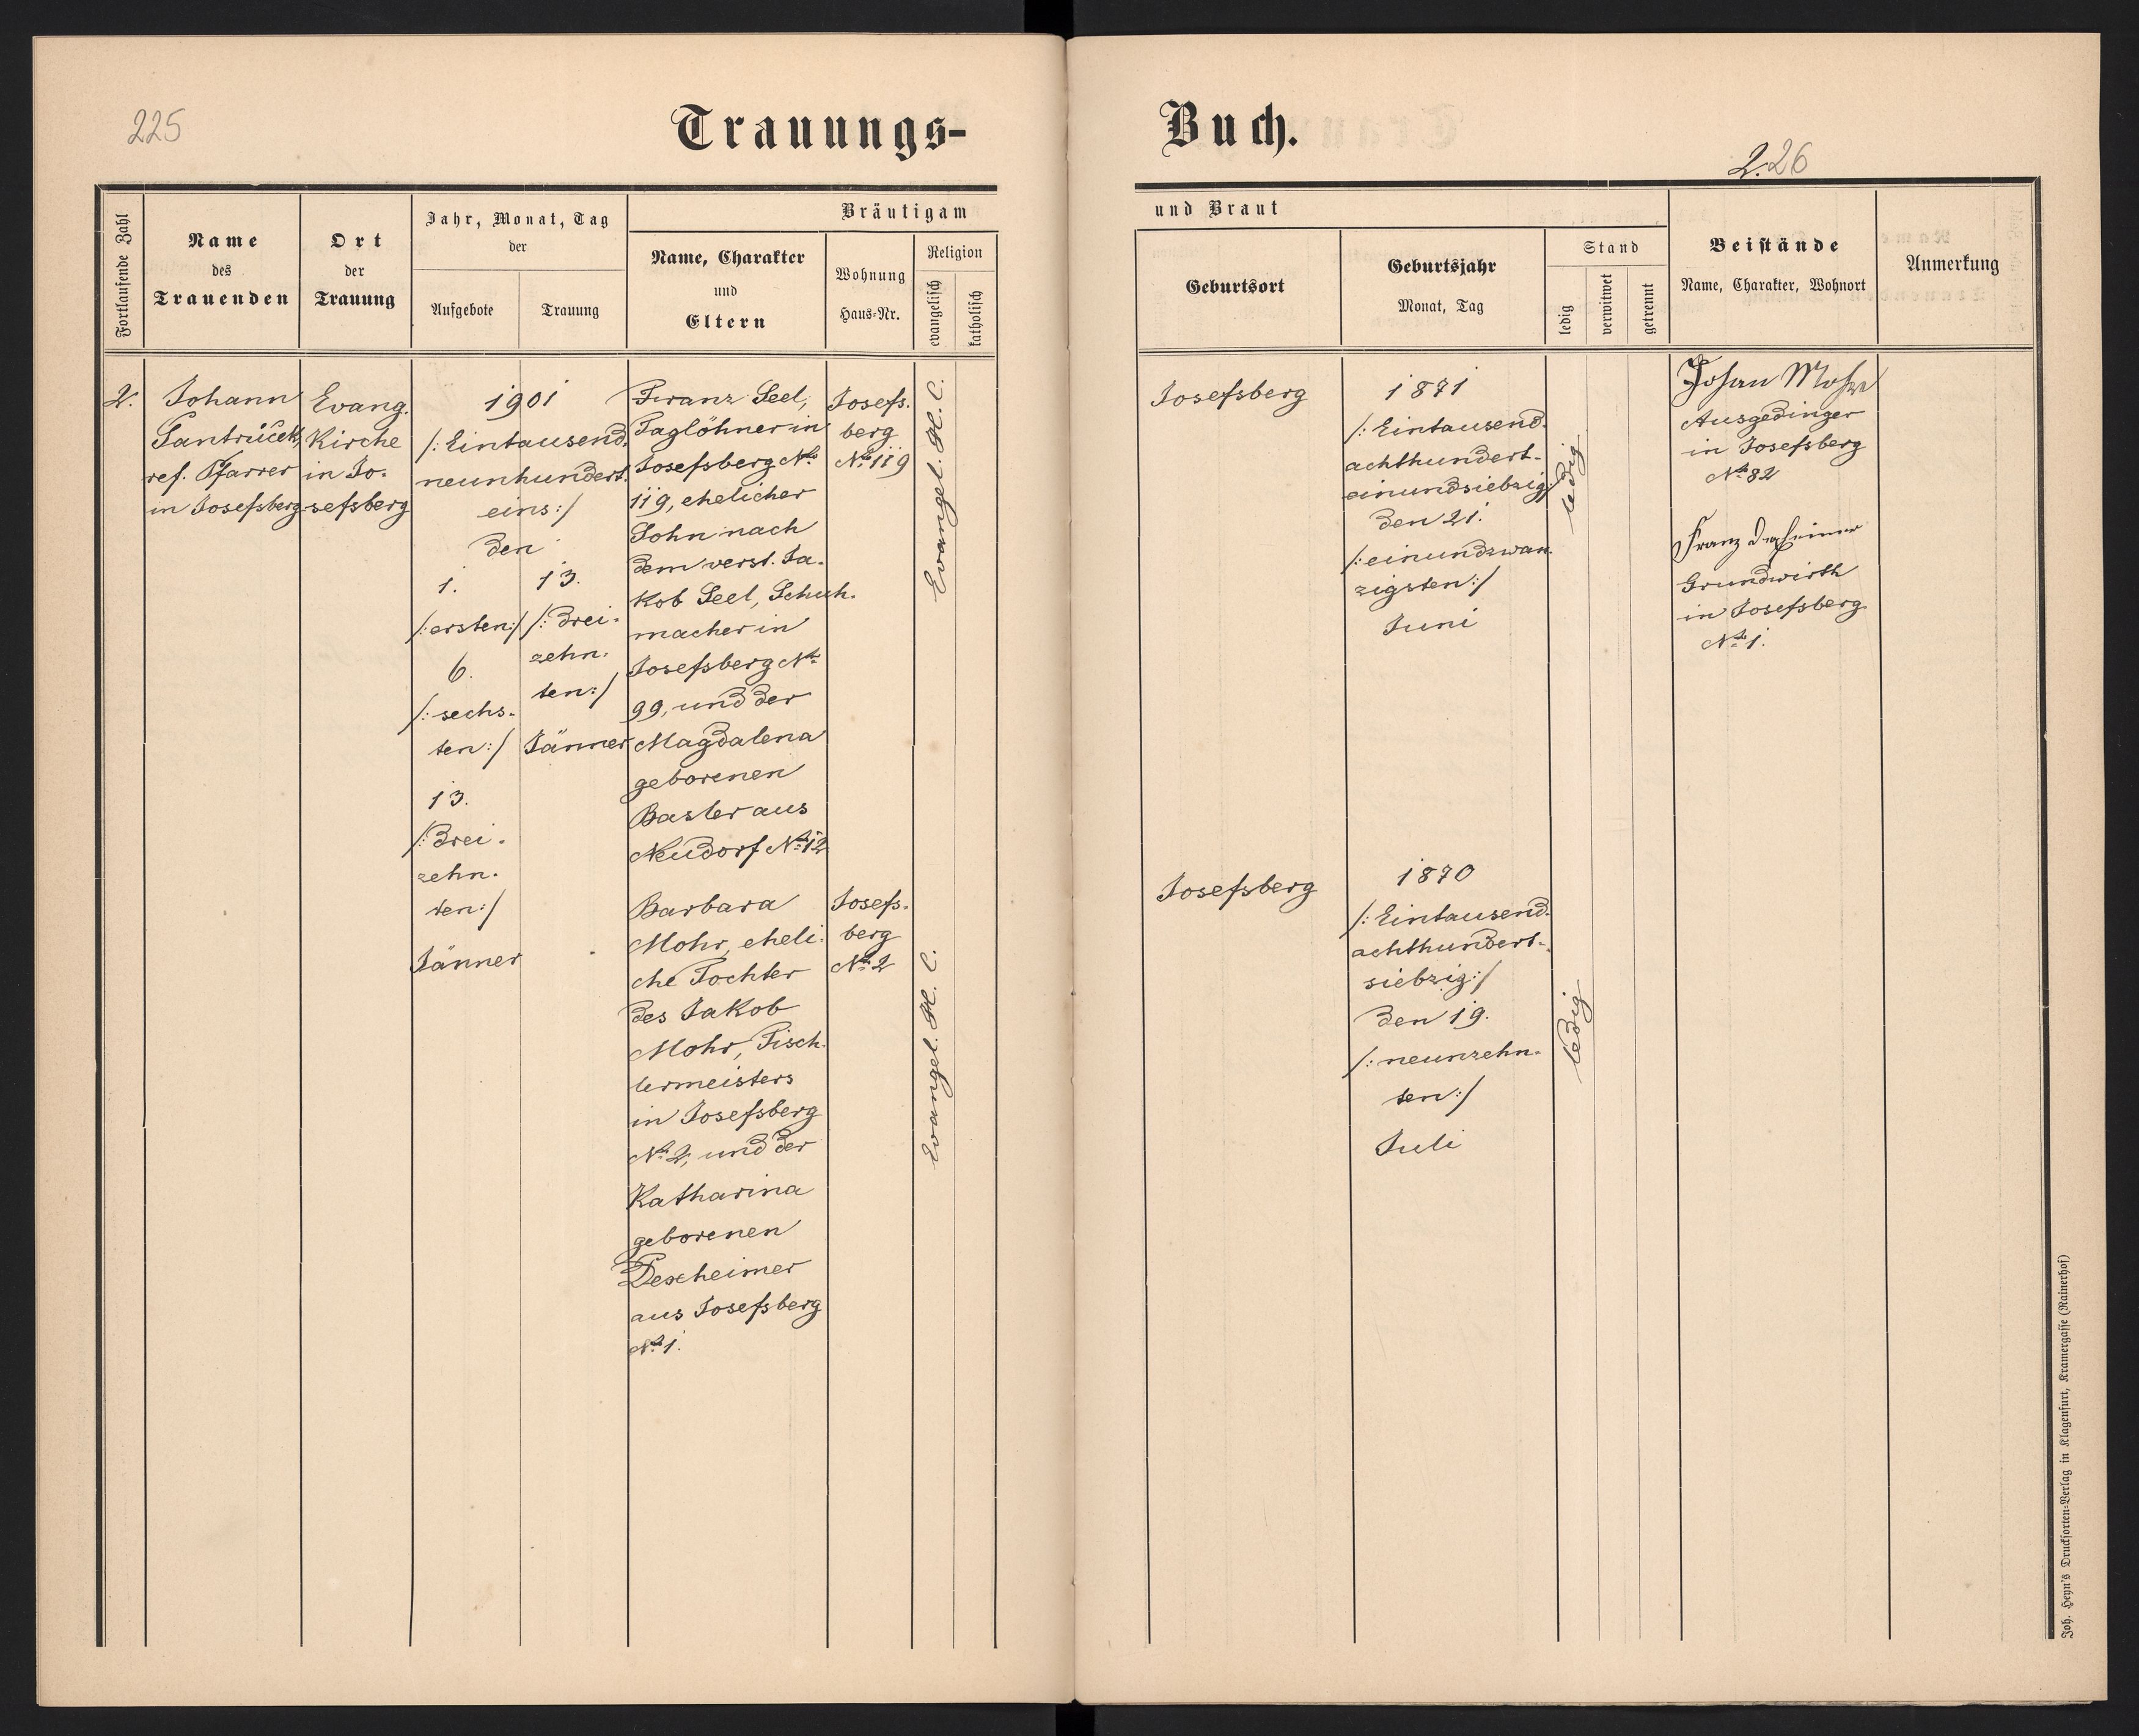 225
Trauungs-
Fortlaufende Zahl
Name
des
Trauenden
Ort
der
Trauung
Jahr, Monat, Tag
der
Aufgebote
Trauung
Bräutigam
Name, Charakter
und
Eltern
Wohnung
Haus-Nr.
Religion
evangelisch
katholisch
2.
Johann
Santrůček,
ref. Pfarrer
in Josefsberg
Evang.
Kirche
in Jo-
sefsberg
1901
/: Eintausend-
neunhundert-
eins :/
den
1.
/: ersten :/
6.
/: sechs-
ten :/
13.
/: drei-
zehn-
ten :/
Jänner
13.
/: drei-
zehn-
ten :/
Jänner
Franz Seel,
Taglöhner in
Josefsberg No.
119, ehelicher
Sohn nach
dem verst. Ja-
kob Seel, Schuh-
macher in
Josefsberg No.
99, und der
Magdalena
geborenen
Basler aus
Neudorf No. 12
Josefs-
berg
No. 119
Evangel. H. C.
Barbara
Mohr, eheli-
che Tochter
des Jakob
Mohr, Tisch-
lermeisters
in Josefsberg
No. 2, und der
Katharina
geborenen
Dexheimer
aus Josefsberg
No. 1.
Josefs-
berg
No. 2
Evangel. H. C.
Buch.
2.26
und Braut
Geburtsort
Geburtsjahr
Monat, Tag
Stand
ledig
verwitwet
getrennt
Beistände
Name, Charakter, Wohnort
Anmerkung
Josefsberg
1871
/: Eintausend-
achthundert-
einundsiebzig :/
den 21.
/: einundzwan-
zigsten :/
Juni
ledig
Johan Mohr
Ausgedinger
in Josefsberg
No. 82
Franz Dexheimer
Grundwirth
in Josefsberg
No. 1.
Josefsberg
1870
/: Eintausend-
achthundert-
siebzig :/
den 19.
/: neunzehn-
ten :/
Juli
ledig
Joh. Heyn's Drucksorten-Verlag in Klagenfurt, Kramergasse (Rainerhof)